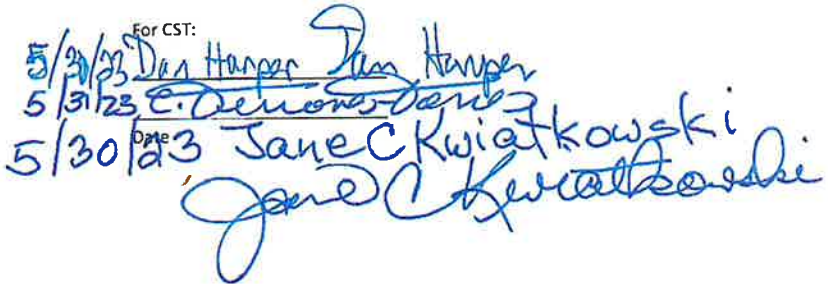 For CST:
5/30/23 Dan Harper Dan Harper
5/31/23 E.
Date
5/30/23 Jane C Kwiatkowski
Jane C Kwiatkowski